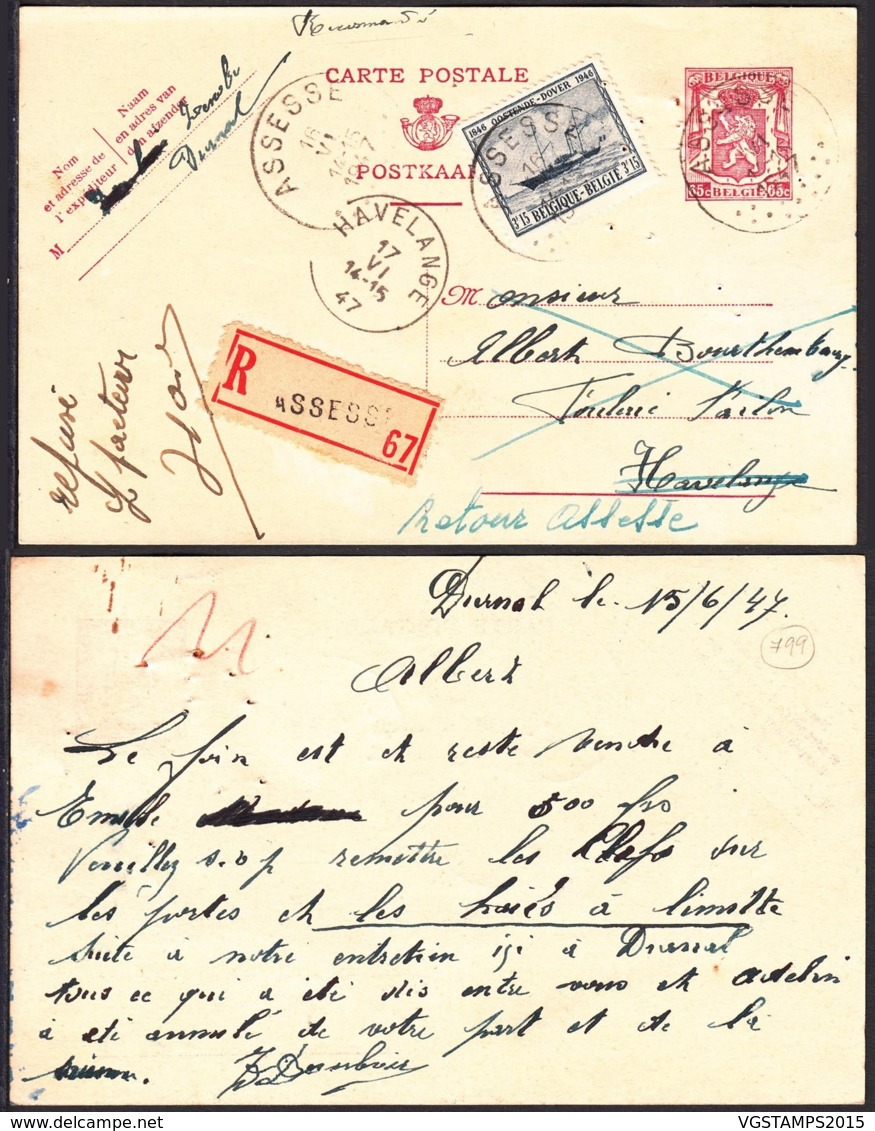 Recommandé
CARTE POSTALE
POSTKAART
Nom et adresse de l'expéditeur
Naam en adres van den afzender
M
Durnal
ASSESSE
16
VI
14-15
1947
HAVELANGE
17
VI
14-15
47
1846 OOSTENDE-DOVER 1946
3F15 BELGIQUE-BELGIË 3F15
ASSESSE
BELGIQUE
65c BELGIË 65c
ASSESSE
Monsieur
Albert
Havelange
Retour Assesse
R
ASSESSE
67
refusé
facteur
Durnal le 15/6/47.
799
Albert
Le foin est et reste vendre à
Emile pour 500 frs
Veuillez s.v.p remettre les Clefs sur
les portes et les haies à limitte
suite à notre entretien ici à Durnal
tous ce qui a été dis entre vous et Adelin
à été annulé de votre part et de la
VGSTAMPS2015